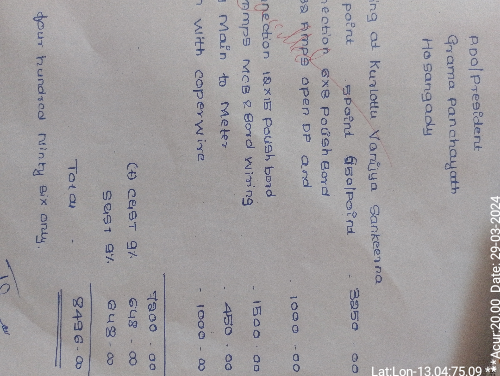 President
Grama Panchayath
Hosangady
ing at Kunlottu Vanijya Sankeerna
point 5point 650/point - 3250 00
nection 6x8 Poush Bord
32 Amps open DP and - 1000 . 00
nection 18x15 Poush bord
Amps MCB & Bord Wiring - 1500 . 00
Main to Meter - 450 . 00
with Coper Wire - 1000 . 00
7200 . 00
(+) CGST 9% 648 . 00
SGST 9% 648 . 00
Total - 8496 . 00
four hundred Ninty six only.
Lat:Lon-13.04:75.09 **Acur:20.00 Date: 29-03-2024